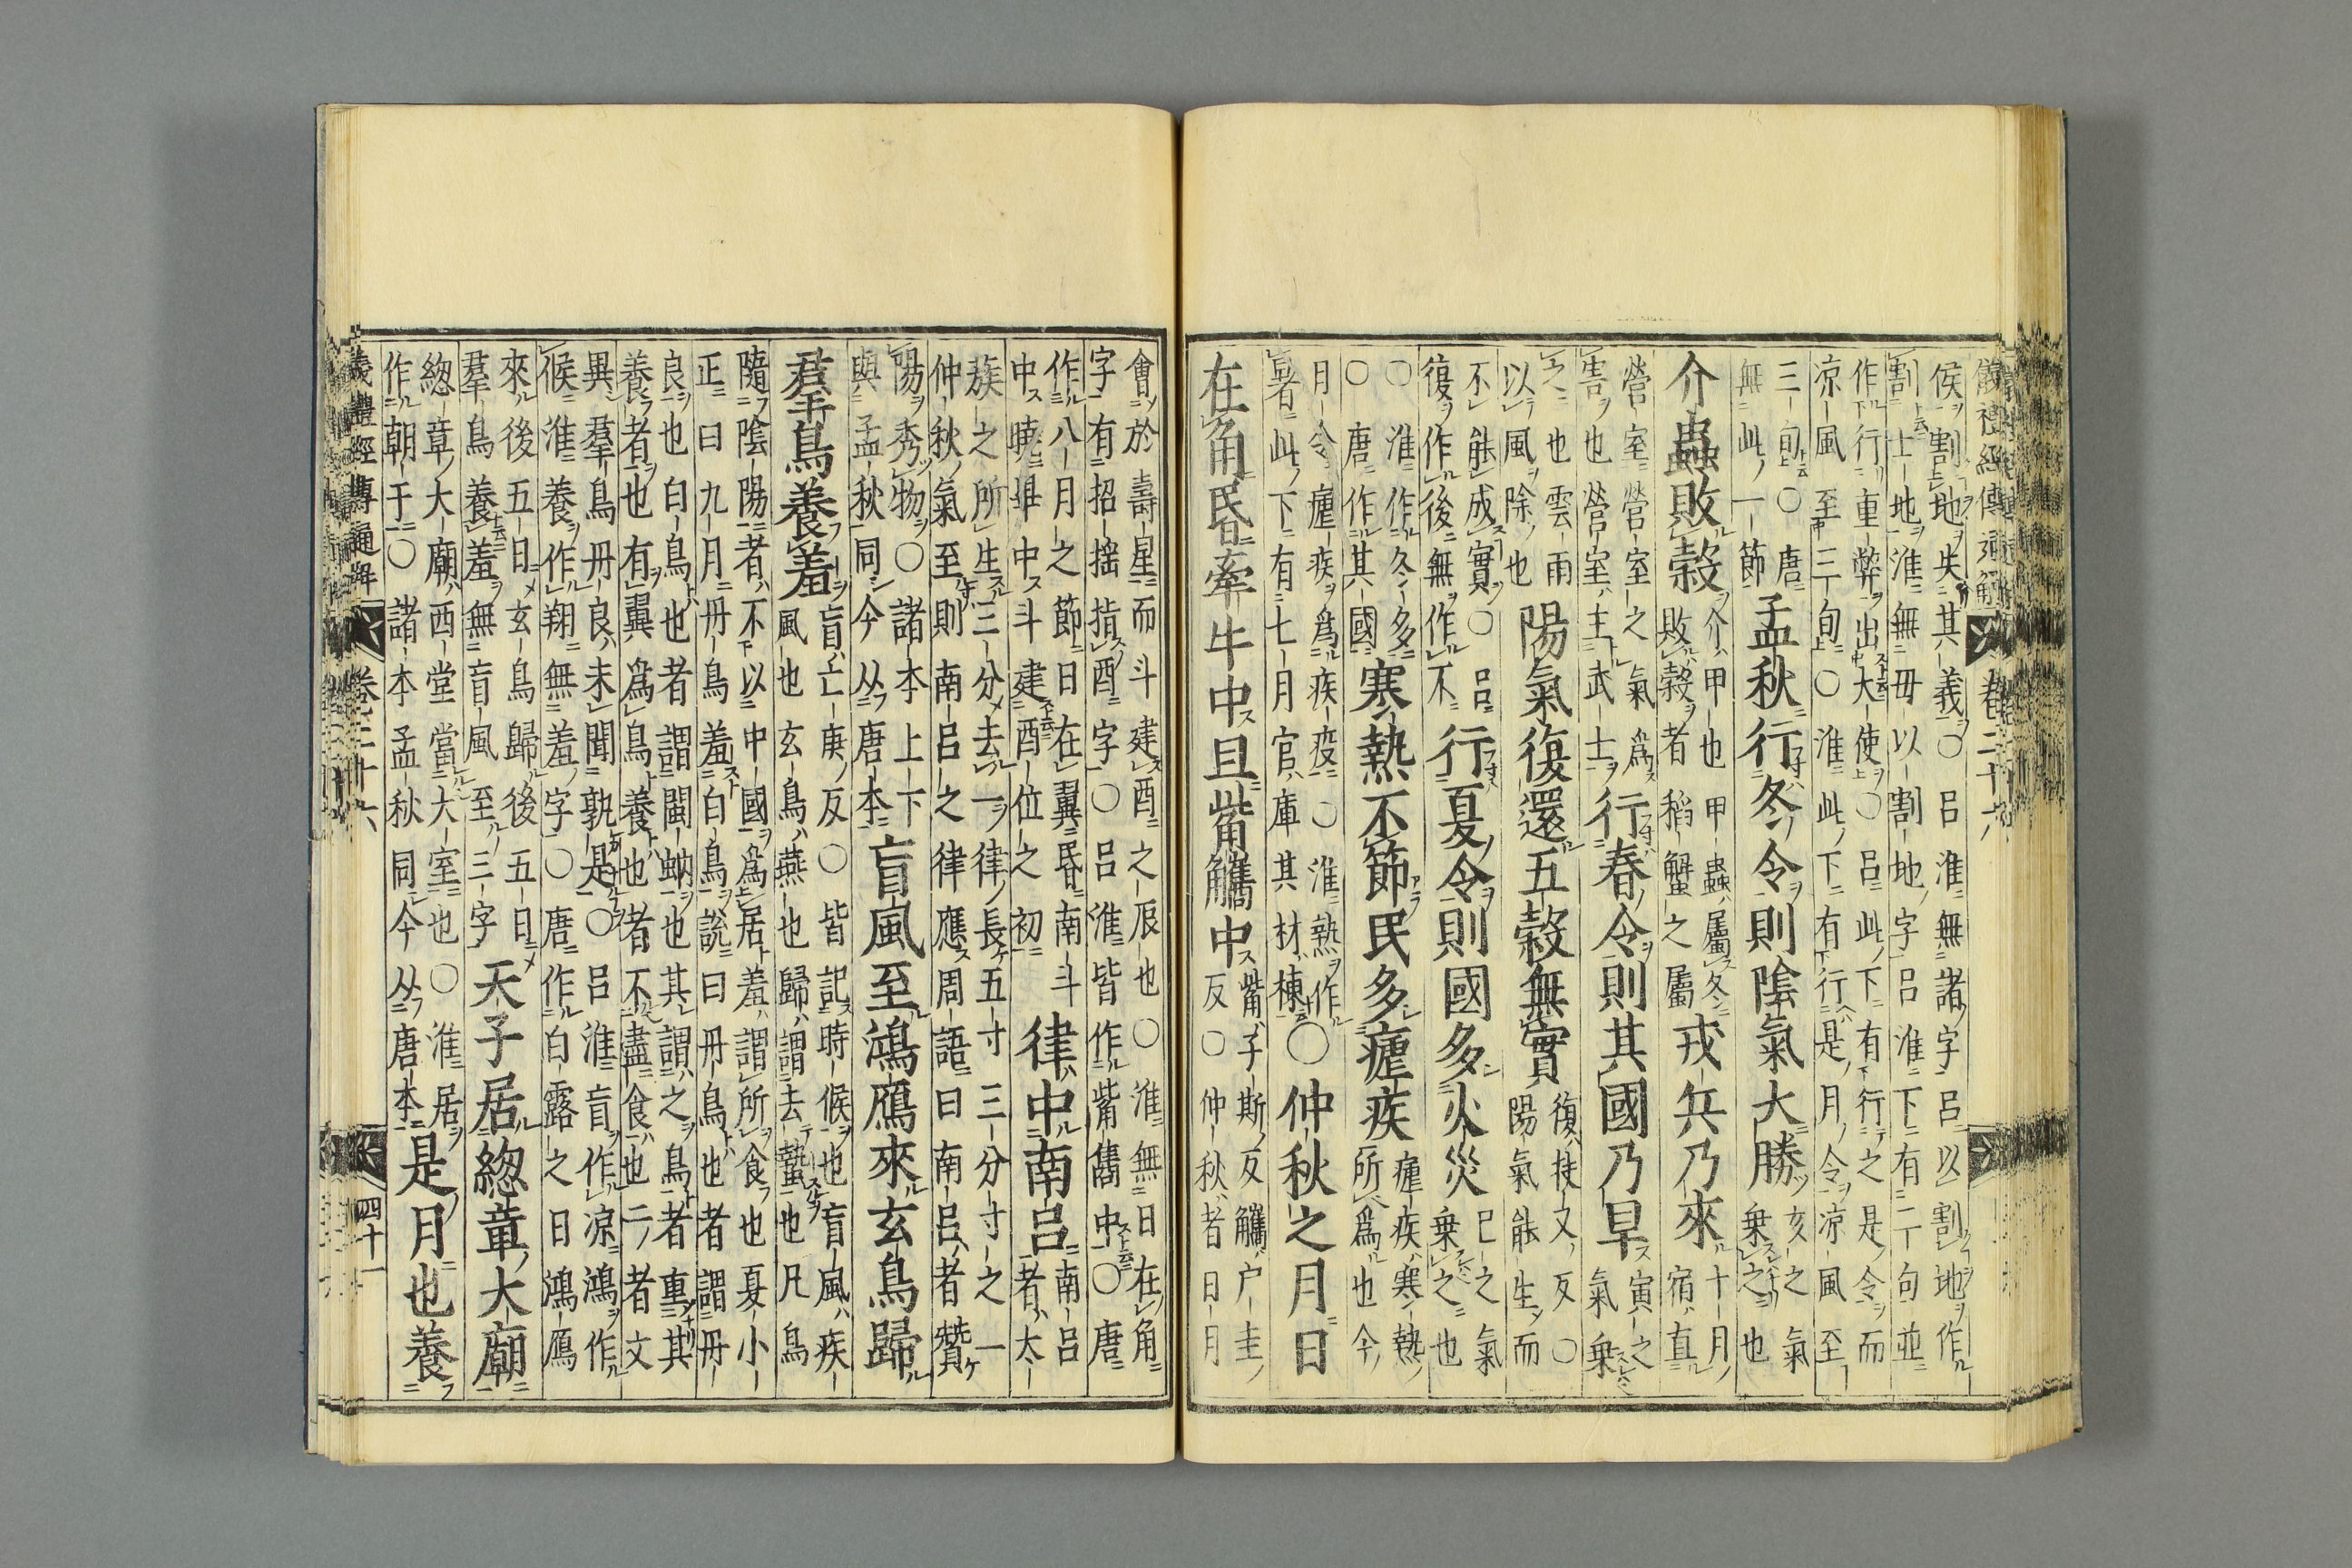 儀禮經傳通解 卷二十六
侯割地失其義○呂淮無諸字呂以割地作
割上地淮無毋以割地字呂淮下有二句並
作行重弊出大使○呂此下有行之是令而
涼風至三旬○淮此下有行是月令涼風至
三旬○唐
無此一節
孟秋行冬令則陰氣大勝
亥之氣
乗之也
介蟲敗穀
介甲也甲蟲屬冬
敗穀者稻蟹之屬
戎兵乃來
十月
宿直
營室營室之氣爲
害也營室主武士
行春令則其國乃旱
寅之
氣乗
之也雲雨
以風除也
陽氣復還五穀無實
復扶又反○
陽氣能生而
不能成實○呂
復作後無作不
行夏令則國多火災
巳之氣
乗之也
○淮作冬多
○唐作其國
寒熱不節民多瘧疾
瘧疾寒熱
所爲也今
月令瘧疾爲疾疫○淮熱作
暑此下有七月官庫其材楝
○仲秋之月日
在角昏牽牛中旦觜觿中
觜子斯反觿户圭
反○仲秋者日月
會於壽星而斗建酉之辰也○淮無日在角
字有招揺指酉字○呂淮皆作觜巂中○唐
作八月之節日在翼昏南斗
中曉畢中斗建酉位之初
律中南呂
南呂
者太
蔟之所生三分去一律長五寸三分寸之一
仲秋氣至則南呂之律應周語曰南呂者贊
陽秀物○諸本上下
與孟秋同今从唐本
盲風至鴻鴈來玄鳥歸
羣鳥養羞
盲亡庚反○皆記時候也盲風疾
風也玄鳥燕也歸謂去蟄也凡鳥
隨陰陽者不以中國爲居羞謂所食也夏小
正曰九月丹鳥羞白鳥說曰丹鳥也者謂丹
良也白鳥也者謂閩蚋也其謂之鳥者重其
養者也有翼爲鳥養也者不盡食也二者文
異羣鳥丹良未聞孰是○呂淮盲作凉鴻作
候淮養作翔無羞字○唐作白露之日鴻鴈
來後五日玄鳥歸後五日
羣鳥養羞無盲風至三字
天子居緫章大廟
緫章大廟西堂當大室也○淮居
作朝于○諸本孟秋同今从唐本
是月也養
儀禮經傳通解 卷二十六 四十一